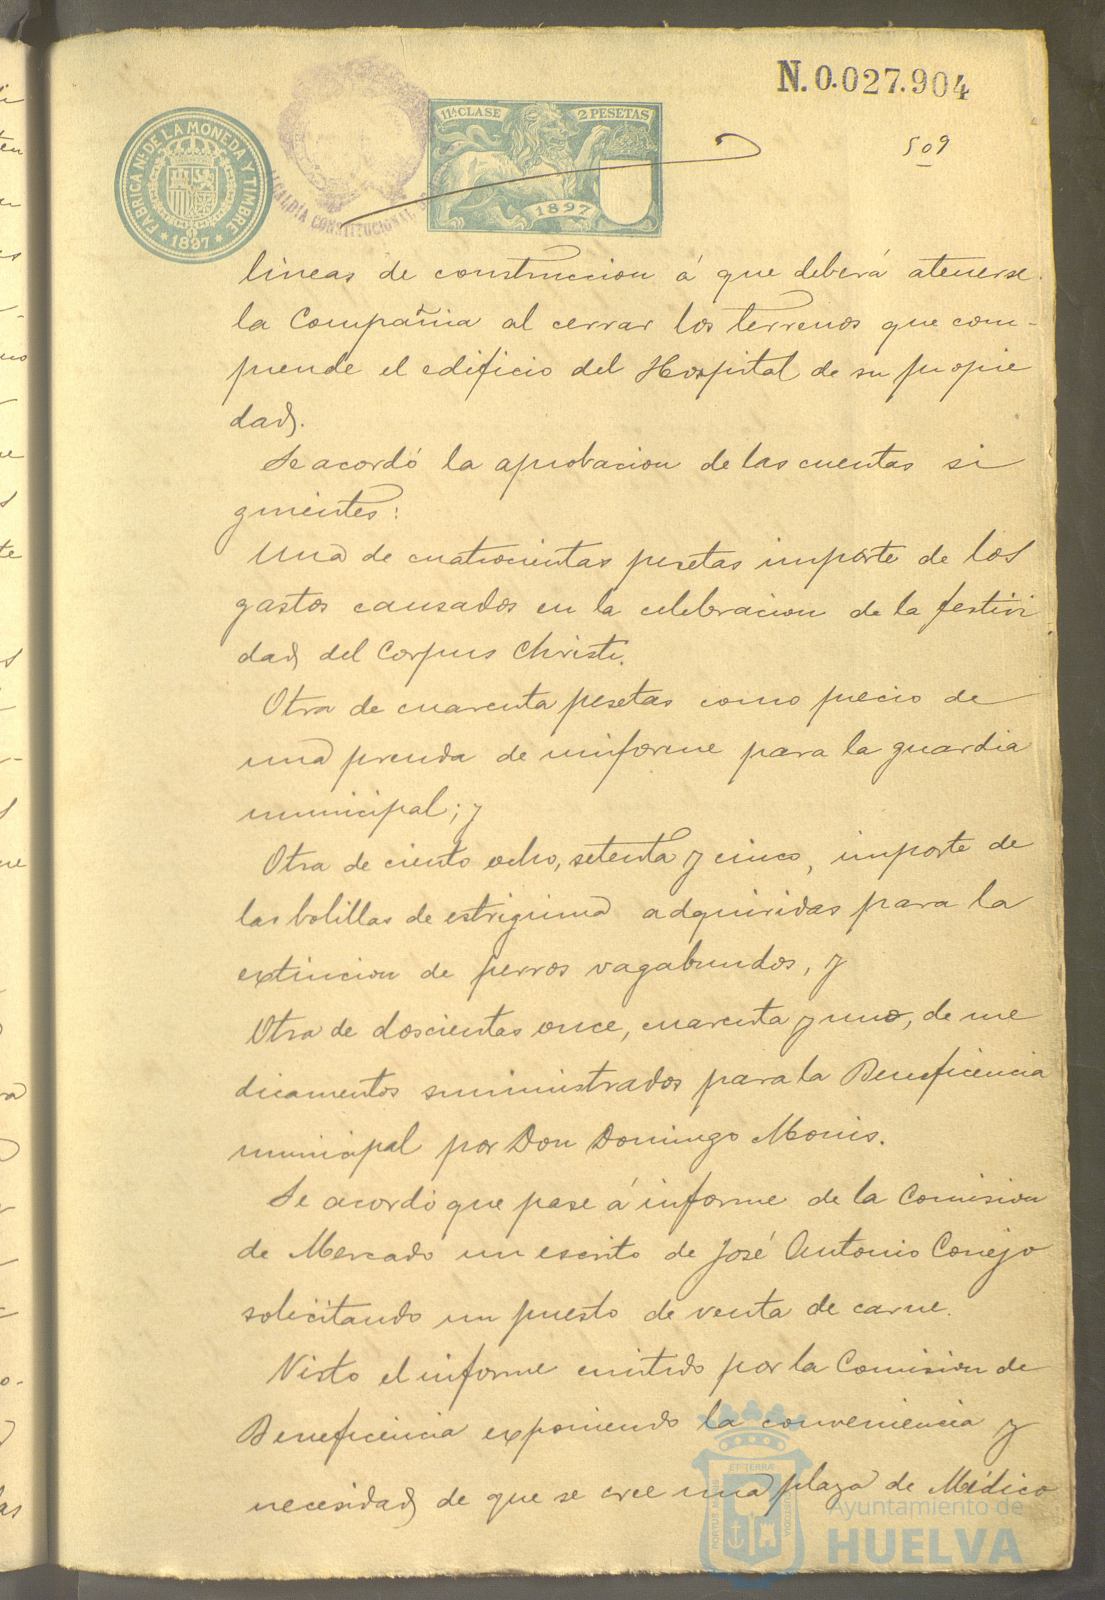 N. 0.027.904
FABRICA NAL. DE LA MONEDA Y TIMBRE
* 1897 *
ALCALDIA CONSTITUCIONAL
11ª CLASE 2 PESETAS
1897
509
lineas de construccion á que deberá atenerse
la Compañia al cerrar los terrenos que com-
prende el edificio del Hospital de su propie
dad.
Se acordó la aprobacion de las cuentas si
guientes:
Una de cuatrocientas pesetas importe de los
gastos causados en la celebracion de la festivi
dad del Corpus Christi.
Otra de cuarenta pesetas como precio de
una prenda de uniforme para la guardia
municipal; y
Otra de ciento ocho, setenta y cinco, importe de
las bolillas de estrignina adquiridas para la
extincion de perros vagabundos, y
Otra de doscientas once, cuarenta y uno, de me
dicamentos suministrados para la Beneficencia
municipal por Don Domingo Monis.
Se acordó que pase á informe de la Comision
de Mercado un escrito de José Antonio Conejo
solicitando un puesto de venta de carne.
Visto el informe emitido por la Comision de
Beneficencia exponiendo la conveniencia y
necesidad de que se cree una plaza de Médico
Ayuntamiento de
HUELVA